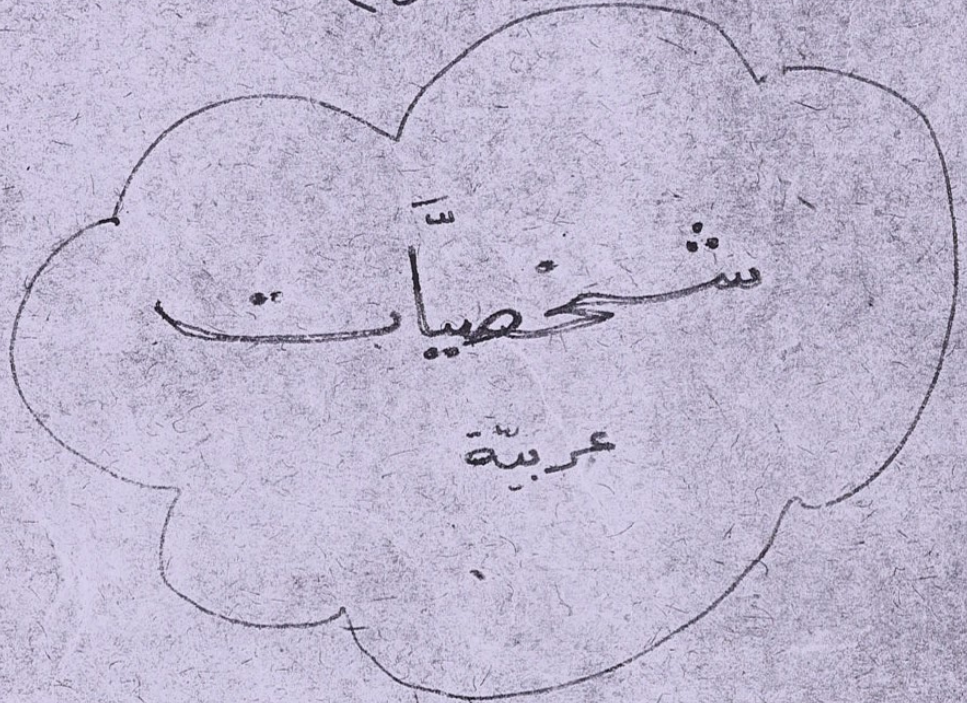 شخصيَّات
عربيّة